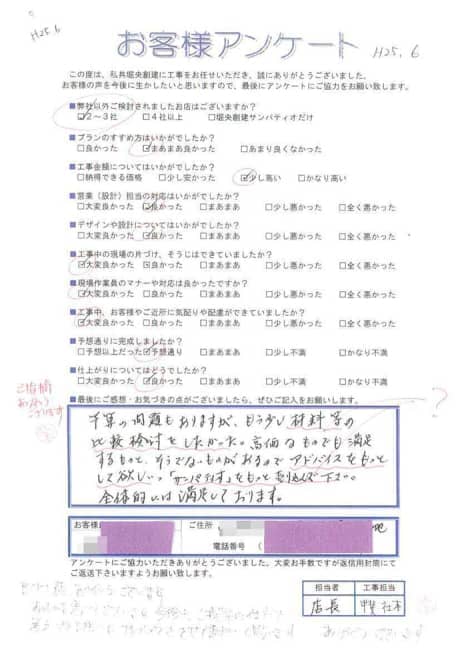 H25.6
お客様アンケート
H25.6
この度は、私共堀央創建に工事をお任せいただき、誠にありがとうございました。
お客様の声を今後に生かしたいと思いますので、最後にアンケートにご協力をお願い致します。
■弊社以外ご検討されましたお店はございますか？
☑2～3社 □4社以上 □堀央創建サンパティオだけ
■プランのすすめ方はいかがでしたか？
□良かった ☑まあまあ良かった □あまり良くなかった
■工事金額についてはいかがでしたか？
□納得できる価格 □少し安かった ☑少し高い □かなり高い
■営業（設計）担当の対応はいかがでしたか？
□大変良かった ☑良かった □まあまあ □少し悪かった □全く悪かった
■デザインや設計についてはいかがでしたか？
□大変良かった ☑良かった □まあまあ □少し悪かった □全く悪かった
■工事中の現場の片づけ、そうじはできていましたか？
☑大変良かった □良かった □まあまあ □少し悪かった □全く悪かった
■現場作業員のマナーや対応は良かったですか？
☑大変良かった □良かった □まあまあ □少し悪かった □全く悪かった
■工事中、お客様やご近所に気配りや配慮ができていましたか？
☑大変良かった □良かった □まあまあ □少し悪かった □全く悪かった
■予想通りに完成しましたか？
□予想以上だった ☑予想通り □まあまあ □少し不満 □かなり不満
■仕上がりについてはどうでしたか？
□大変良かった ☑良かった □まあまあ □少し不満 □かなり不満
■最後にご感想・お気づきの点がございましたら、ぜひご記入をお願いします。
ご協力
ありがとう
ございます
？
予算の問題もありますが、もう少し材料等の
比較検討をしたかった。高価なものでも満足
するものと、そうでないものがあるのでアドバイスをもっと
して欲しい。「サンパティオ」をもっと売り込んで下さい。
全体的には満足しております。
お客様
ご住所
電話番号（
アンケートにご協力いただきありがとうございました。大変お手数ですが返信用封筒にて
ご返送下さいますようお願い致します。
担当者 工事担当
店長